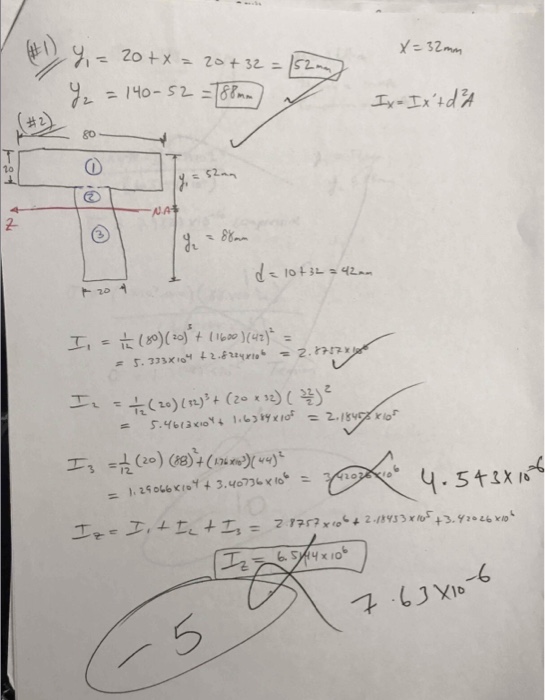 (#1) y₁ = 20 + x = 20 + 32 = 52mm
x = 32mm
y₂ = 140 - 52 = 88mm
Ix = Ix' + d²A
(#2)
80
20
①
y₁ = 52mm
②
N.A
Z
③
y₂ = 88mm
20
d = 10 + 32 = 42mm
I₁ = 1/12 (80)(20)³ + (1600)(42)² =
= 5.333x10⁴ + 2.8224x10⁶ = 2.8757x10⁶
I₂ = 1/12 (20)(32)³ + (20 x 32)(32/2)²
= 5.4613x10⁴ + 1.6384x10⁵ = 2.18453x10⁵
I₃ = 1/12 (20)(88)² + (176x10¹)(44)²
= 1.29066x10⁴ + 3.40736x10⁶ = 3.42026x10⁶ 4.543x10⁻⁶
I_z = I₁ + I₂ + I₃ = 2.8757x10⁶ + 2.18453x10⁵ + 3.42026x10⁶
I_z = 6.5144x10⁶
7.63x10⁻⁶
-5